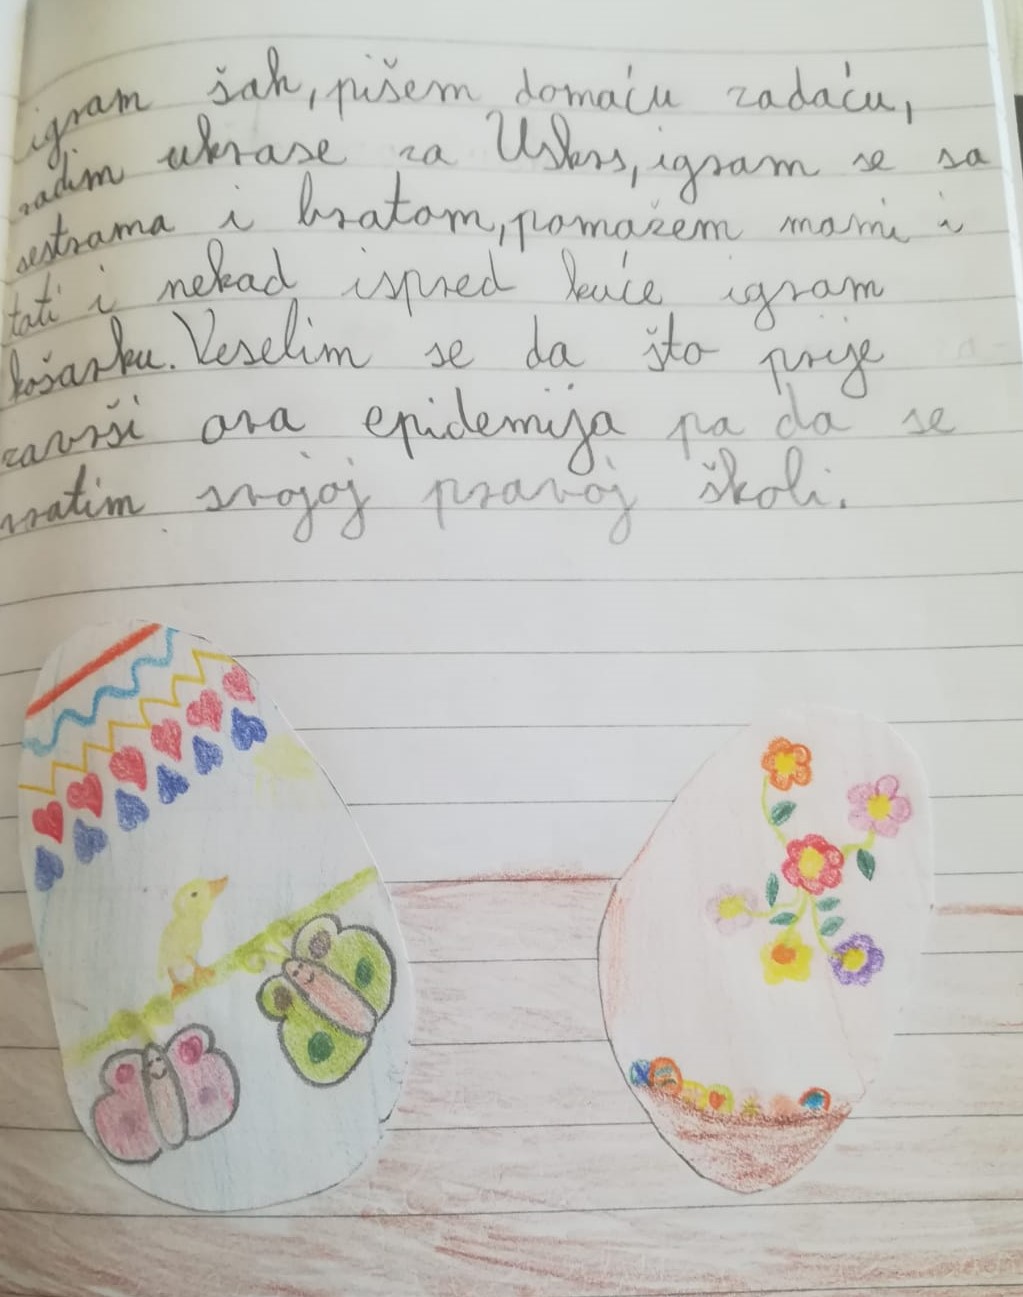 igram šah, pišem domaću zadaću,
radim ukrase za Uskrs, igram se sa
sestrama i bratom, pomažem mami i
tati i nekad ispred kuće igram
košarku. Veselim se da što prije
završi ova epidemija pa da se
vratim svojoj pravoj školi.